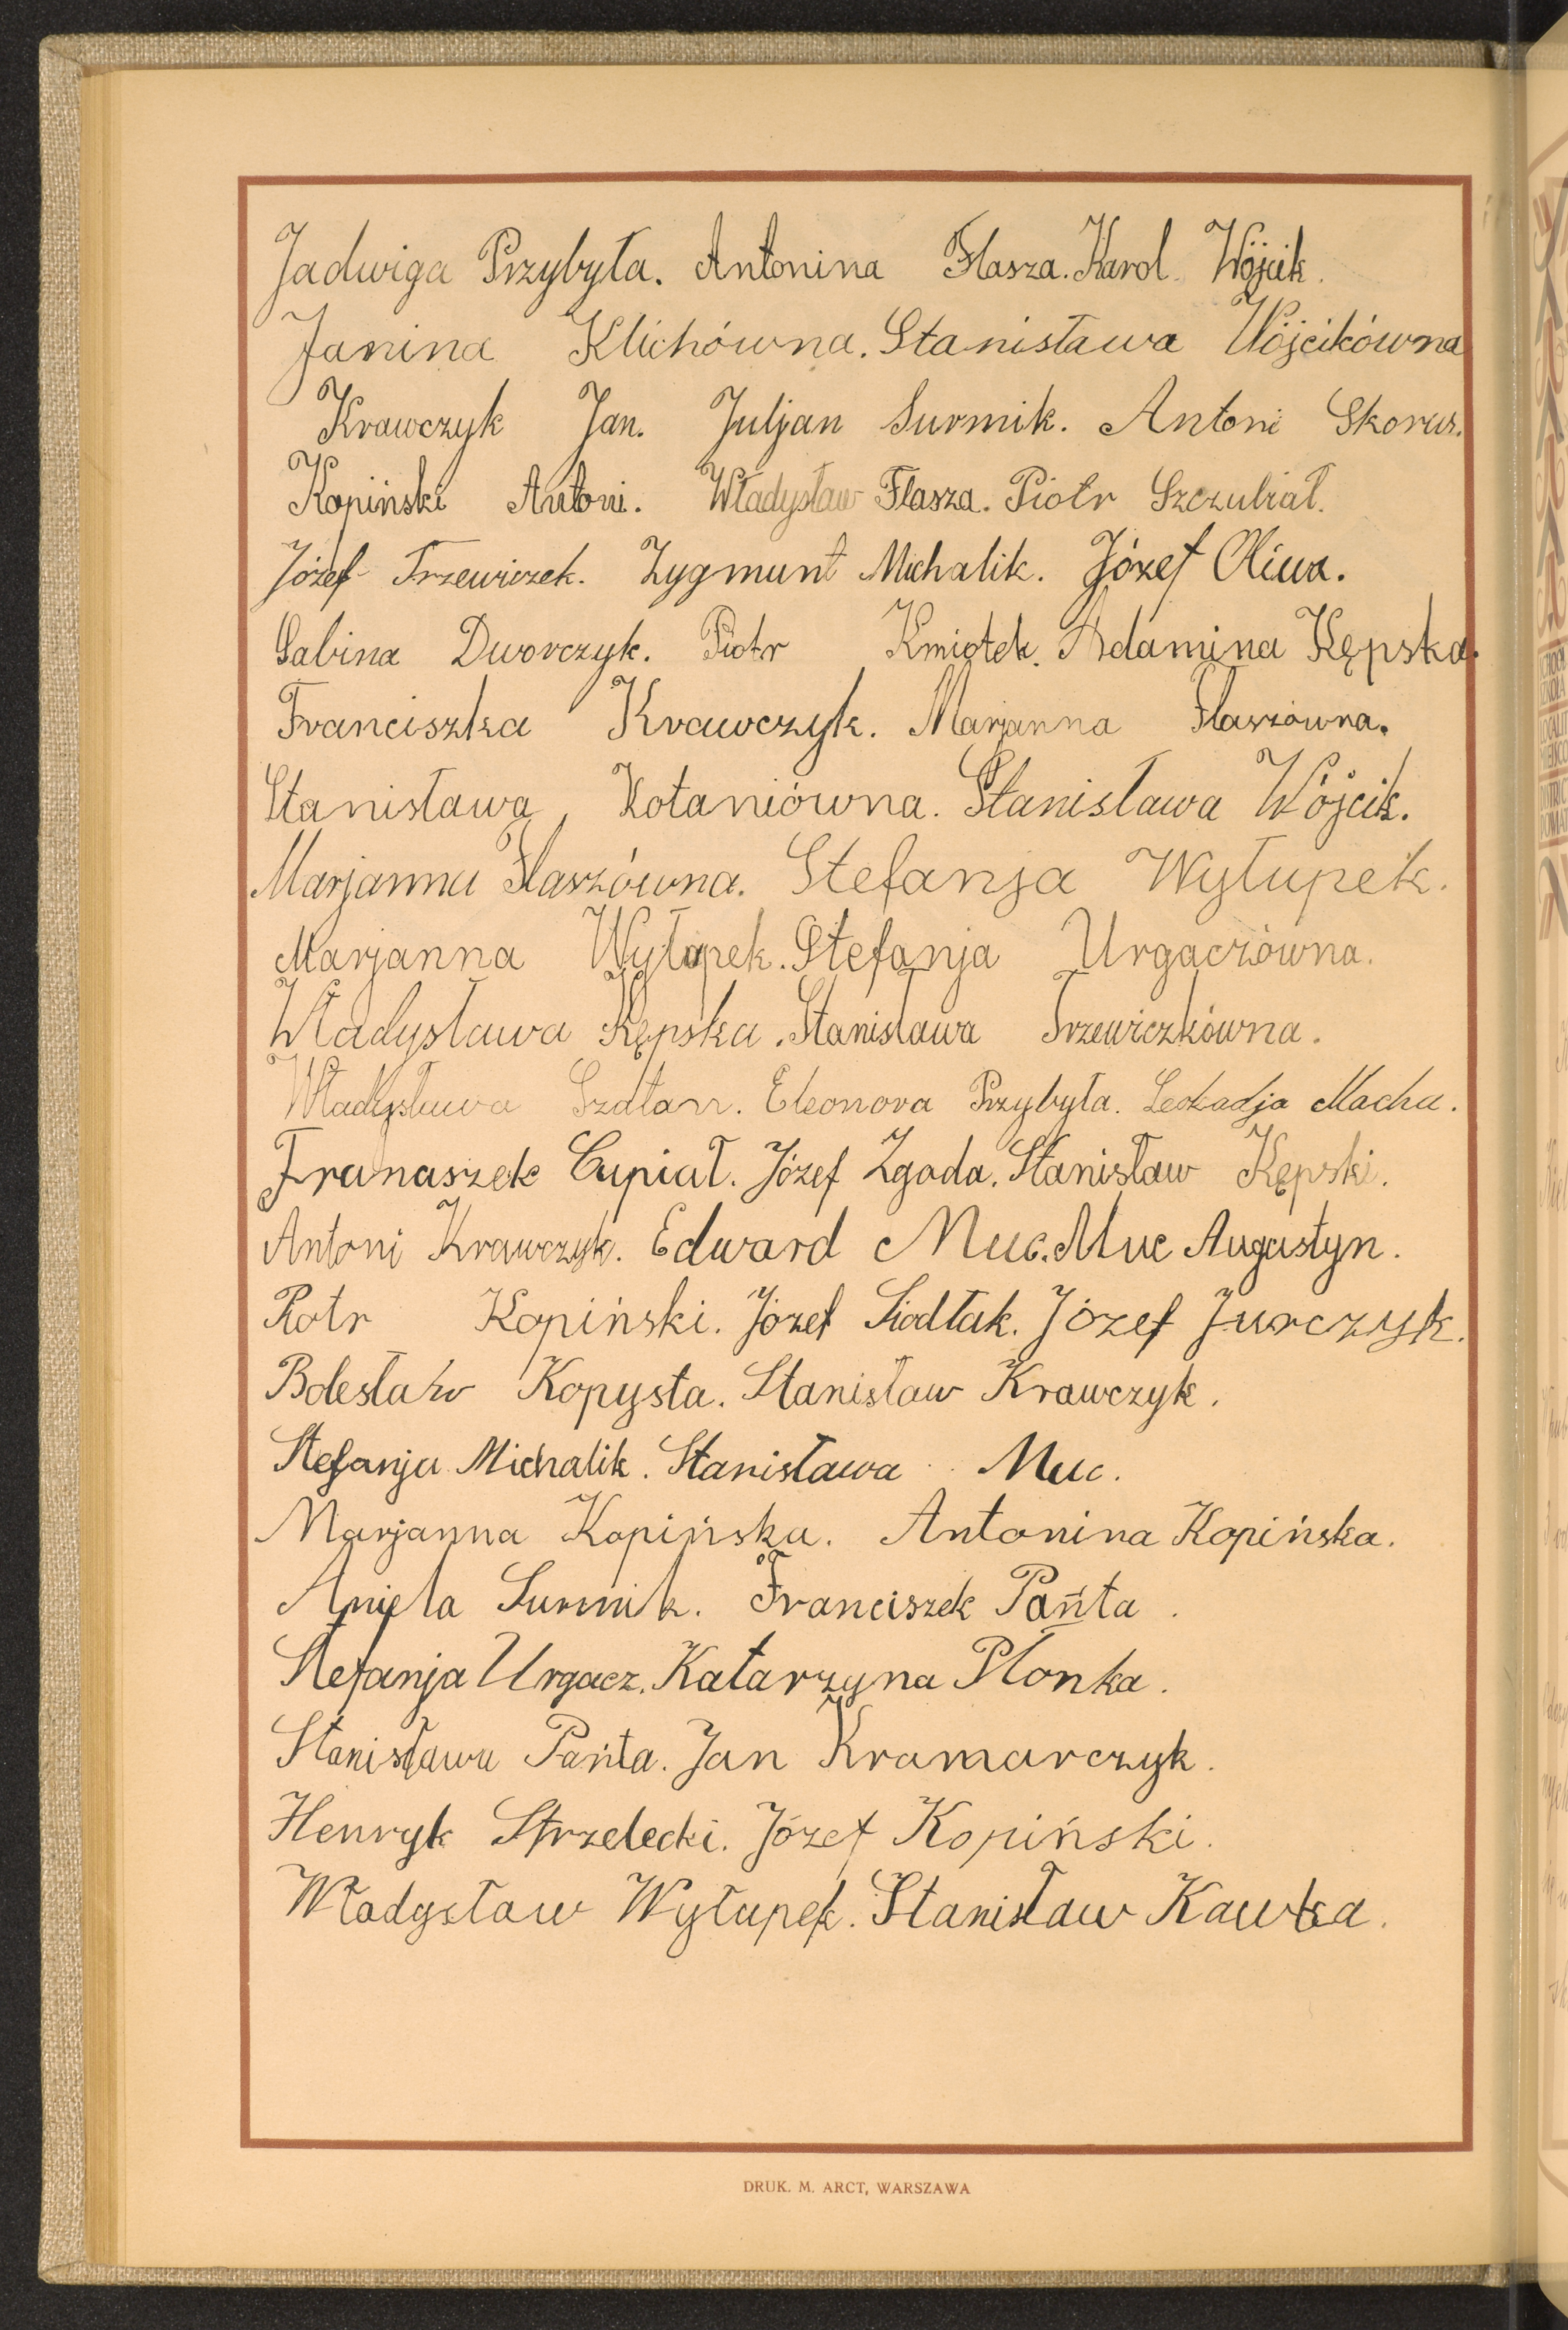 Jadwiga Przybyła. Antonina Flasza. Karol Wójcik.
Janina Klichówna. Stanisława Wójcikówna
Krawczyk Jan. Juljan Surmik. Antoni Skorus.
Kopiński Antoni. Władysław Flasza. Piotr Szczubiał.
Józef Trzewiczek. Zygmunt Michalik. Józef Oliwa.
Sabina Dworczyk. Piotr Kmiotek. Adamina Kępska.
Franciszka Krawczyk. Marjanna Flaszówna.
Stanisława Kotaniówna. Stanisława Wójcik.
Marjanna Flaszówna. Stefanja Wyłupek.
Marjanna Wyłupek. Stefanja Urgaczówna.
Władysława Kępska. Stanisława Trzewiczkówna.
Władysława Szatan. Eleonora Przybyła. Leokadja Macha.
Franaszek Cupiał. Józef Zgoda. Stanisław Kępski.
Antoni Krawczyk. Edward Muc. Muc Augustyn.
Piotr Kopiński. Józef Siodłak. Józef Jurczyk.
Bolesław Kopysta. Stanisław Krawczyk.
Stefanja Michalik. Stanisława Muc.
Marjanna Kopińska. Antonina Kopińska.
Aniela Surmik. Franciszek Pańta.
Stefanja Urgacz. Katarzyna Płonka.
Stanisława Pańta. Jan Kramarczyk.
Henryk Strzelecki. Józef Kopiński.
Władysław Wyłupek. Stanisław Kawka.
DRUK. M. ARCT, WARSZAWA